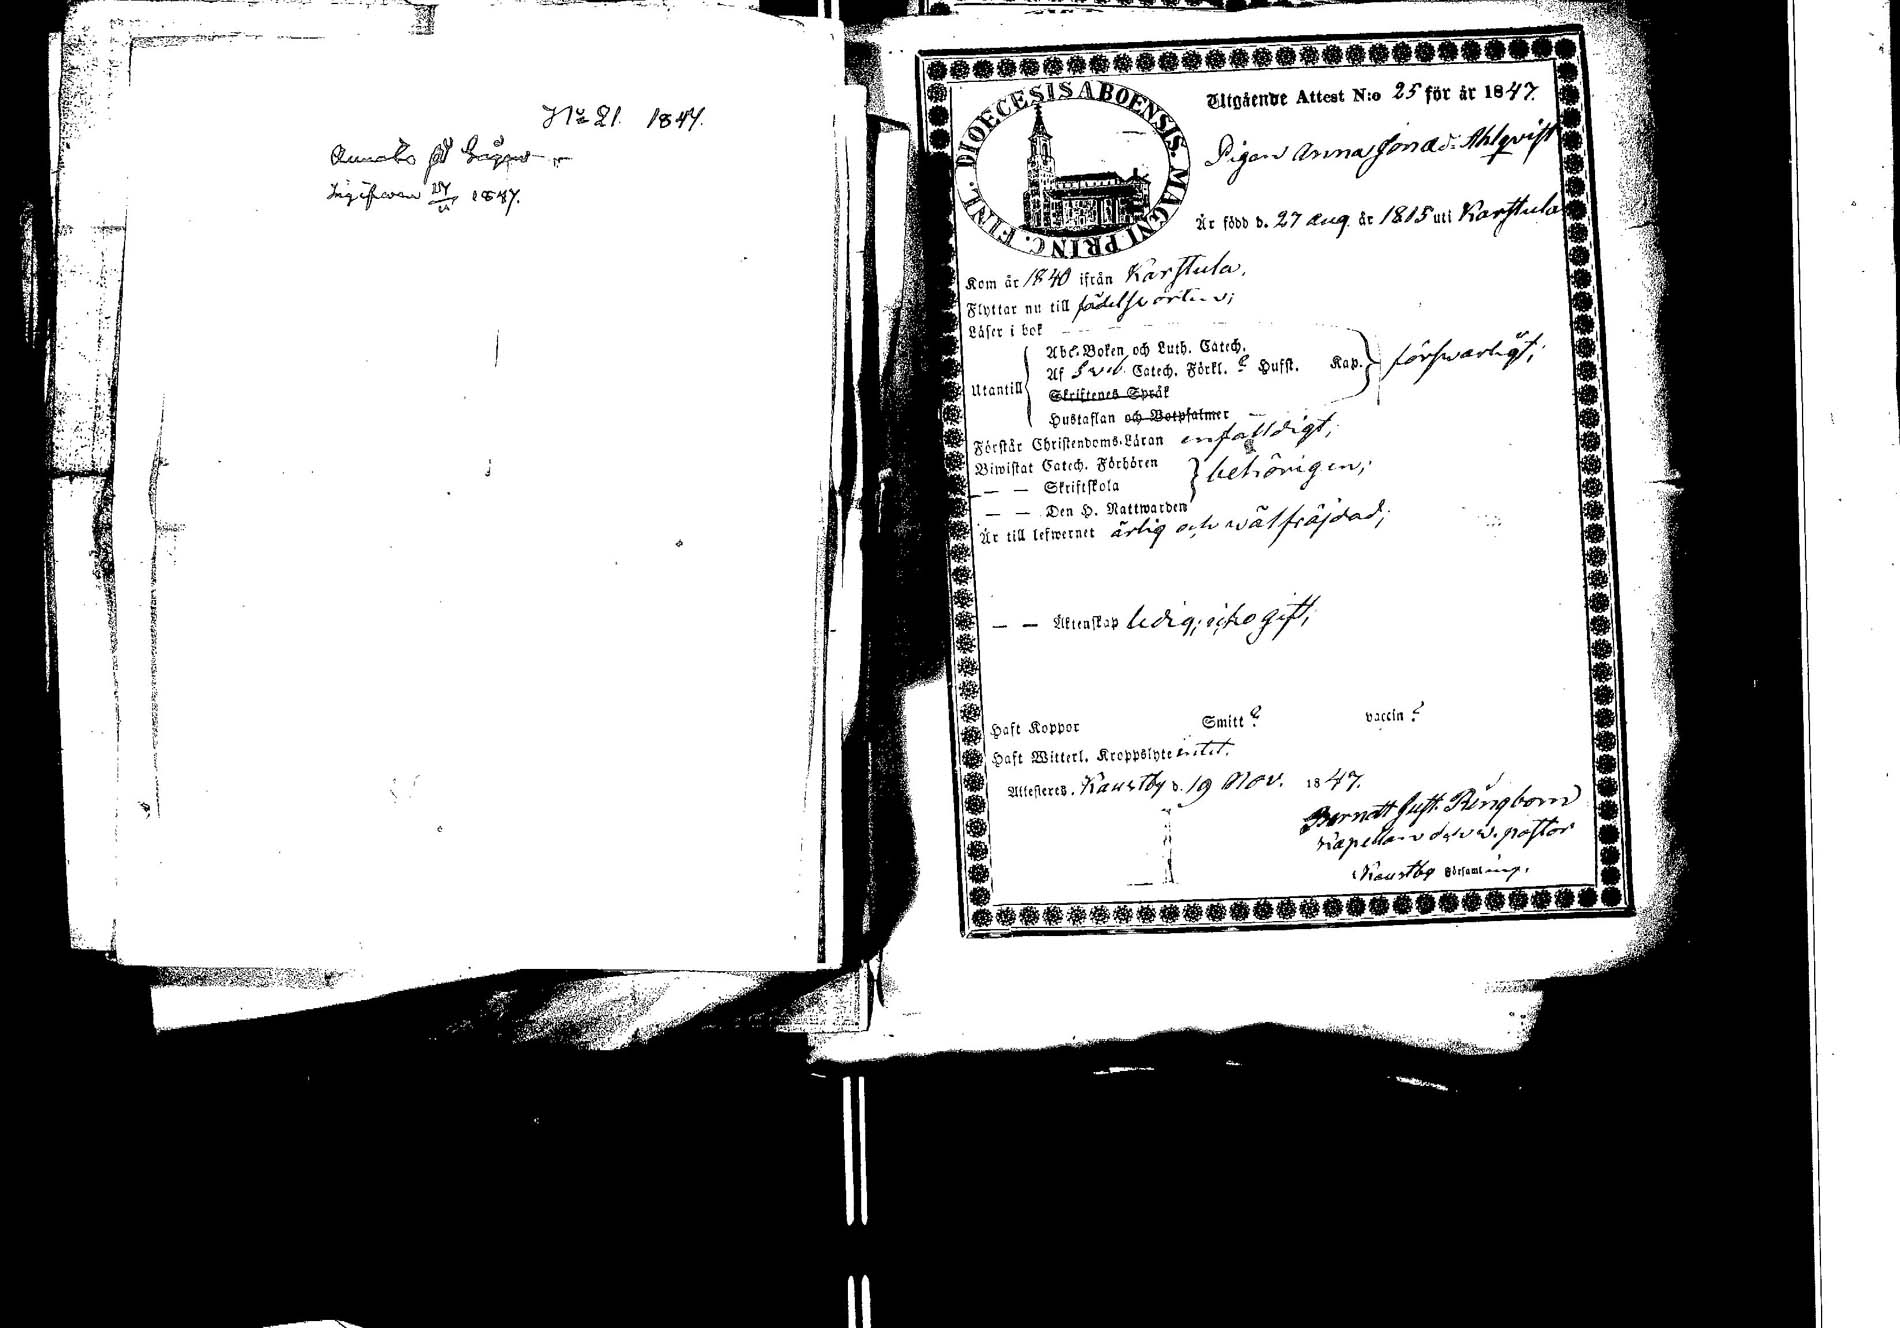 No 21. 1847.
Ingifven 1847.
DIOECESIS ABOENSIS. MAGNI PRINC. FINL.
Utgående Attest N:o 25 för år 1847.
Pigan Anna Jonaed. Ahlqvist
Är född d. 27 Aug. år 1815 uti Karstula
Kom år 1840 ifrån Karstula.
Flyttar nu till födelseorten;
Läser i bok
Utantill
Abc-Boken och Luth. Catech.
Af Sveb. Catech. Förkl. Hufst. Kap.
försvarligt;
Skriftenes Språk
Hustaflan och Botpsalmer
Förstår Christendoms-Läran enfalldigt;
Biwistat Catech. Förhören
— — Skriftskola
behörigen;
— — Den H. Nattwarden
Är till lefwernet ärlig och wälfräjdad;
— — Äktenskap ledig; icke gift;
Haft Koppor Smitt ? vaccin ?
Haft Witterl. Kroppslyte intet.
Attesteres. Kaustby d. 19 Nov. 1847.
Berndt Gust. Ringbom
Kapellan och v. pastor
Kaustby Församling.